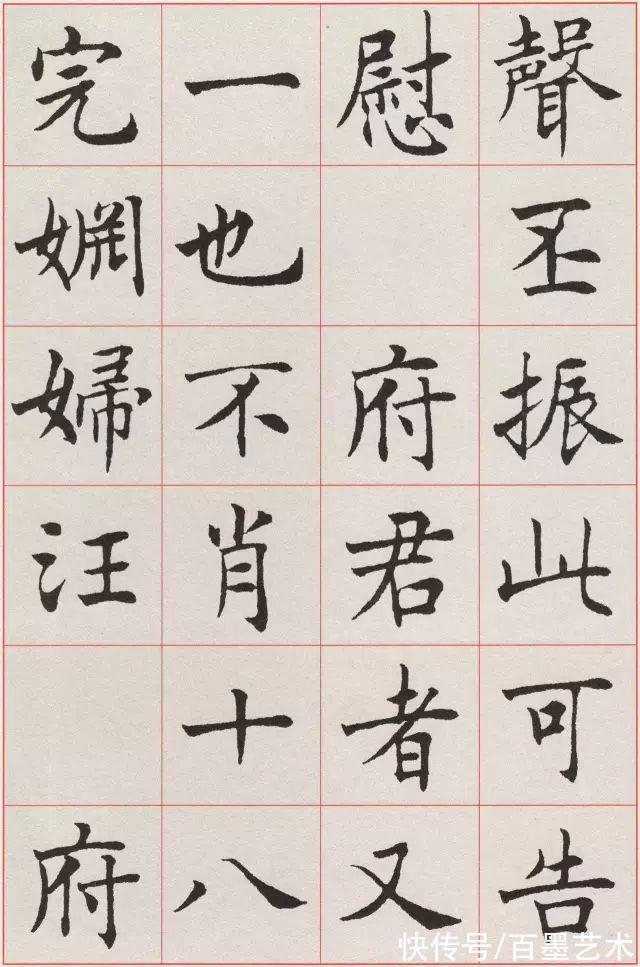 聲丕振此可告
慰 府君者又
一也不肖十八
完婣婦汪 府
快传号/百墨艺术